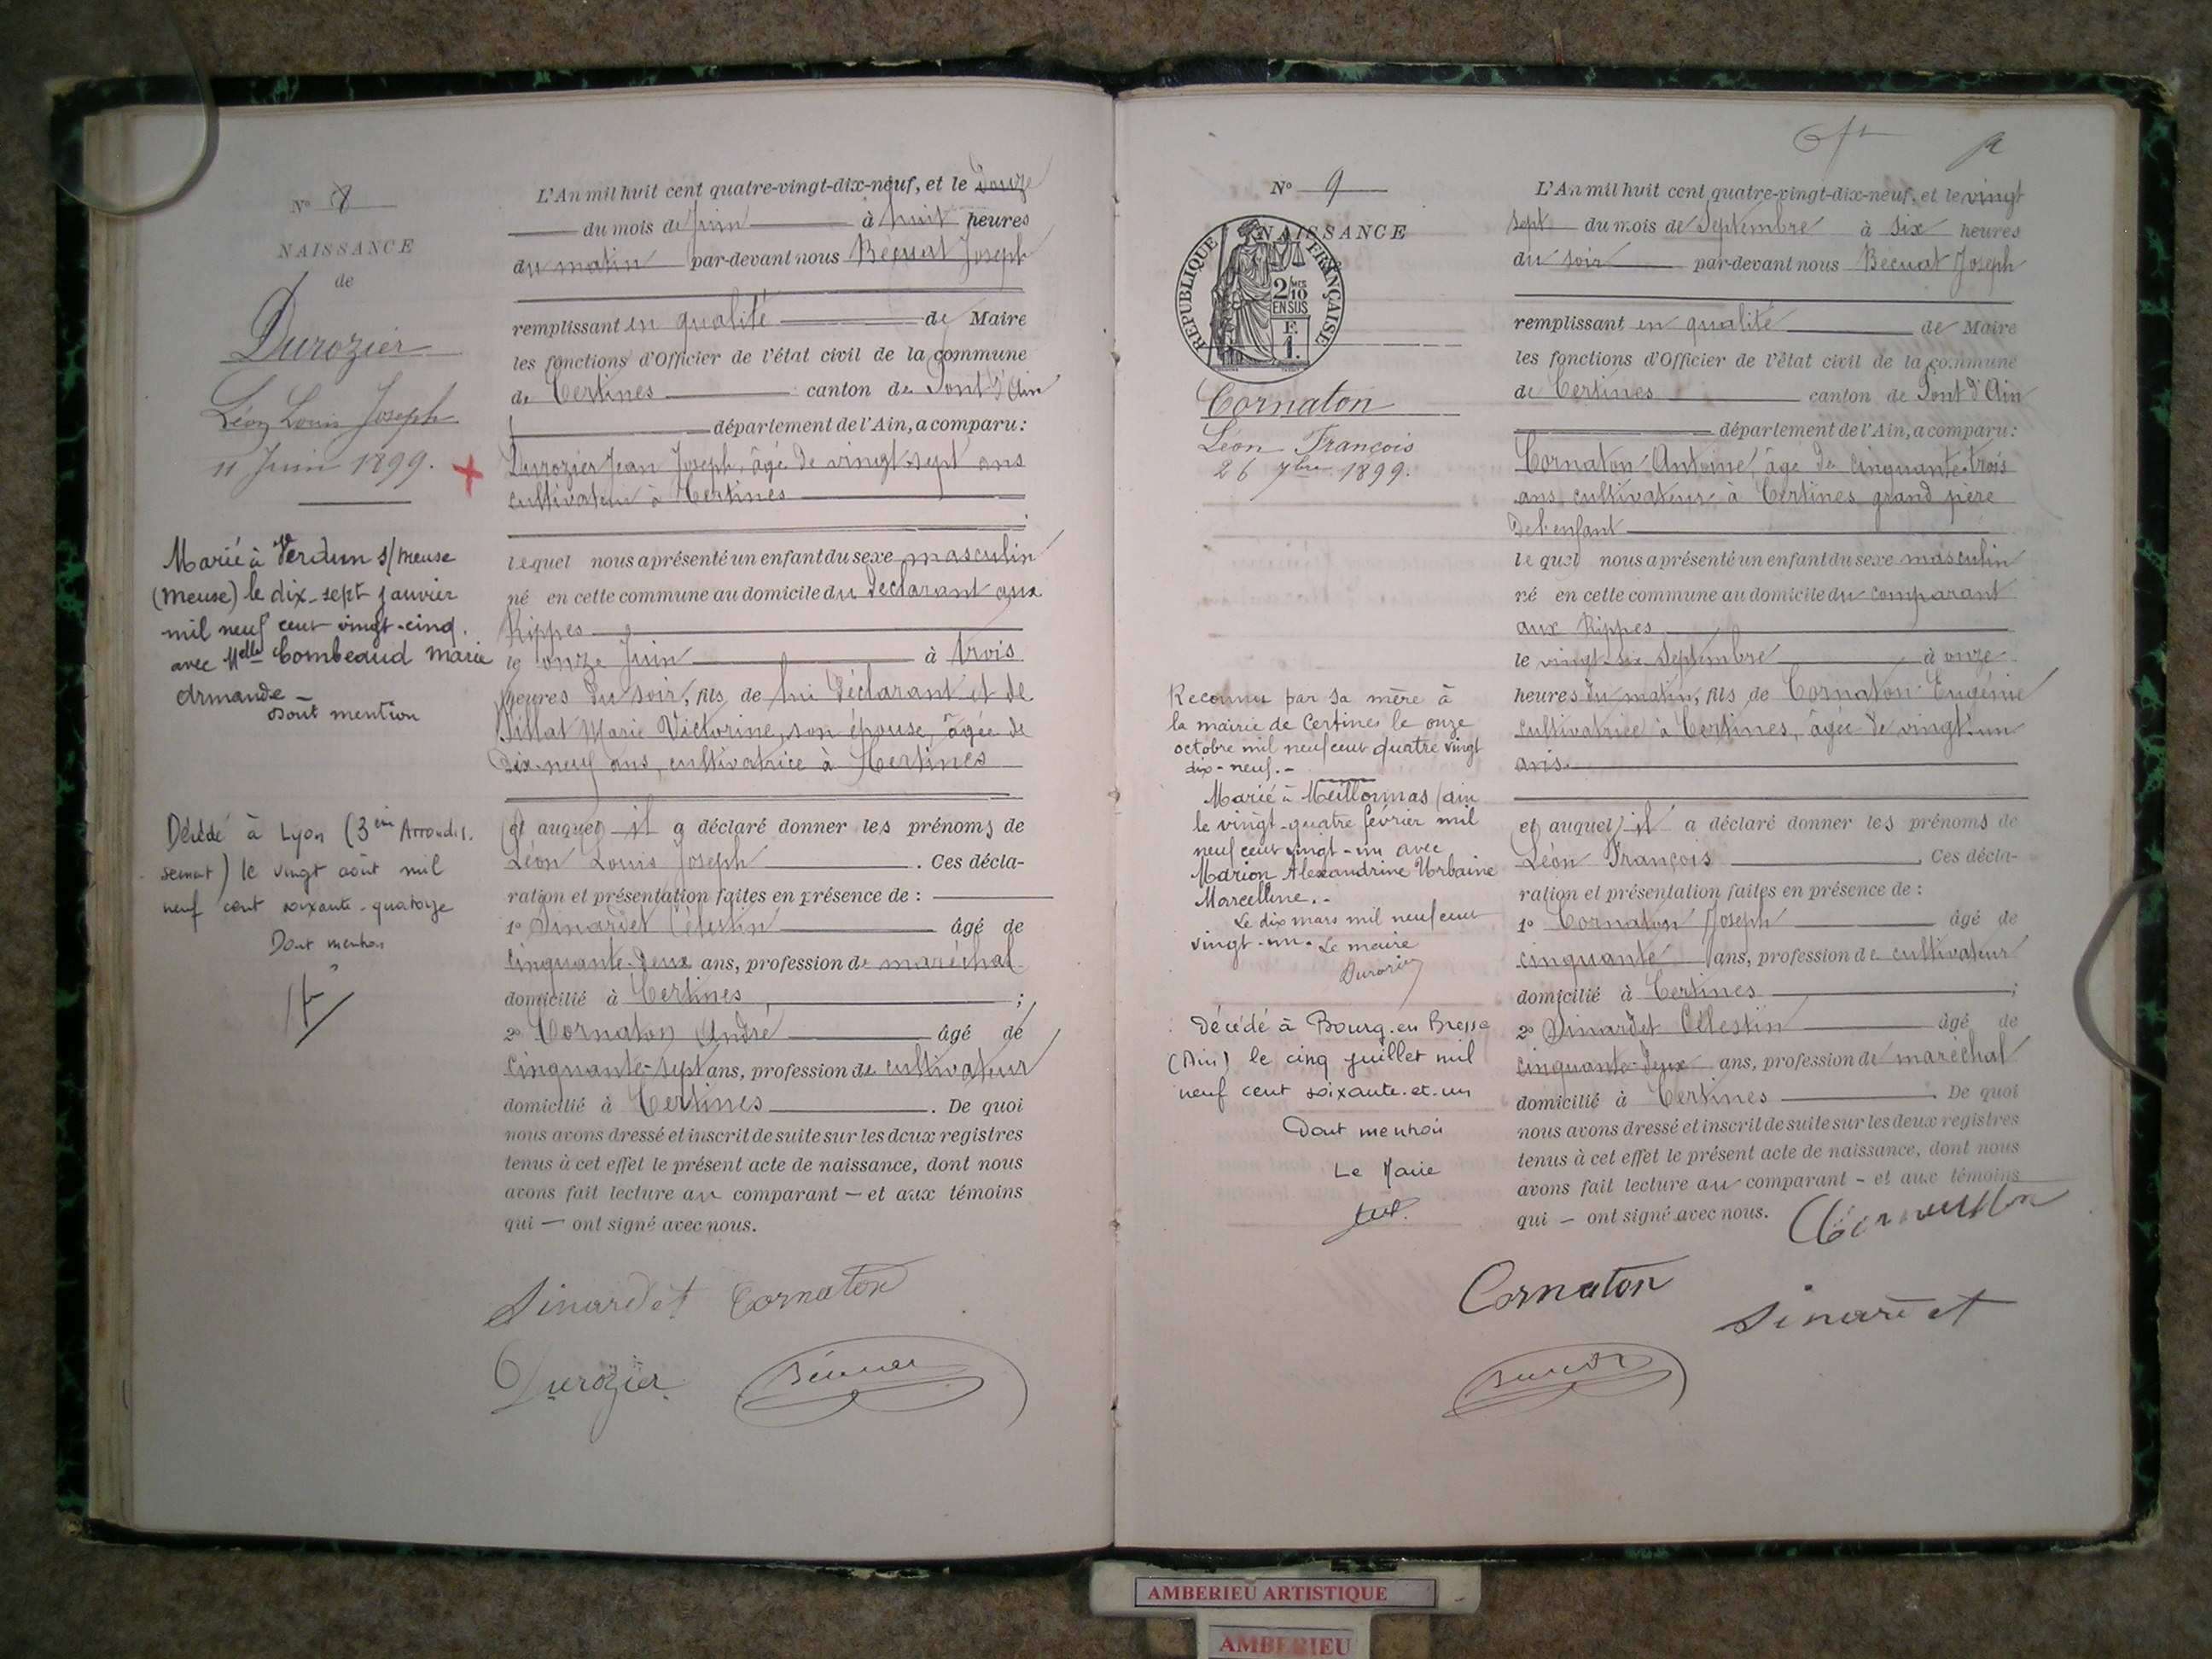 N° 8
NAISSANCE
de
Durozier
Léon Louis Joseph
11 Juin 1899.
Marié à Verdun s/meuse
(Meuse) le dix-sept janvier
mil neuf cent vingt-cinq.
avec Melle Combeaud Marie
Armande —
Dont mention
Décédé à Lyon (3ème Arrondis.
sement) le vingt août mil
neuf cent soixante-quatorze
Dont mention
L'An mil huit cent quatre-vingt-dix-neuf, et le douze
du mois de Juin à huit heures
du matin par-devant nous Bécuat Joseph
remplissant en qualité de Maire
les fonctions d'Officier de l'état civil de la commune
de Certines canton de Pont d'Ain
département de l'Ain, a comparu:
Durozier Jean Joseph, âgé de vingt-sept ans
cultivateur à Certines
lequel nous a présenté un enfant du sexe masculin
né en cette commune au domicile du déclarant aux
Rippes
le onze Juin à trois
heures du soir, fils de lui déclarant et de
Pillat Marie Victorine, son épouse, âgée de
dix-neuf ans, cultivatrice à Certines
et auquel il a déclaré donner les prénoms de
Léon Louis Joseph. Ces décla-
ration et présentation faites en présence de :
1° Sinardet Célestin âgé de
cinquante-deux ans, profession de maréchal
domicilié à Certines ;
2° Cornaton André âgé de
cinquante-sept ans, profession de cultivateur
domicilié à Certines. De quoi
nous avons dressé et inscrit de suite sur les deux registres
tenus à cet effet le présent acte de naissance, dont nous
avons fait lecture au comparant — et aux témoins
qui — ont signé avec nous.
Sinardet Cornaton
Durozier Bécuat
N° 9
NAISSANCE
REPUBLIQUE FRANÇAISE
2/10 MES
EN SUS
F.
1.
Cornaton
Léon François
26 7bre 1899.
Reconnu par sa mère à
la mairie de Certines le onze
octobre mil neuf cent quatre vingt
dix-neuf.-
Marié à Meillonnas (Ain
le vingt-quatre février mil
neuf cent vingt-un avec
Marion Alexandrine Urbaine
Marcelline.-
Le dix mars mil neuf cent
vingt-un. Le maire
Durozier
Décédé à Bourg-en Bresse
(Ain) le cinq juillet mil
neuf cent soixante-et-un
Dont mention
Le Maire
L'An mil huit cent quatre-vingt-dix-neuf, et le vingt
sept du mois de Septembre à six heures
du soir par-devant nous Becuat Joseph
remplissant en qualité de Maire
les fonctions d'Officier de l'état civil de la commune
de Certines canton de Pont d'Ain
département de l'Ain, a comparu:
Cornaton Antoine, âgé de cinquante-trois
ans, cultivateur à Certines grand père
de l'enfant
lequel nous a présenté un enfant du sexe masculin
né en cette commune au domicile du comparant
aux Rippes
le vingt-six Septembre à onze
heures du matin, fils de Cornaton Eugénie
cultivatrice à Certines, âgée de vingt-un
ans.
et auquel il a déclaré donner les prénoms de
Léon François. Ces décla-
ration et présentation faites en présence de :
1° Cornaton Joseph âgé de
cinquante ans, profession de cultivateur
domicilié à Certines ;
2° Sinardet Célestin âgé de
cinquante-deux ans, profession de maréchal
domicilié à Certines. De quoi
nous avons dressé et inscrit de suite sur les deux registres
tenus à cet effet le présent acte de naissance, dont nous
avons fait lecture au comparant - et aux témoins
qui — ont signé avec nous. Cornaton
Cornaton Sinardet
Becuat
AMBERIEU ARTISTIQUE
AMBERIEU